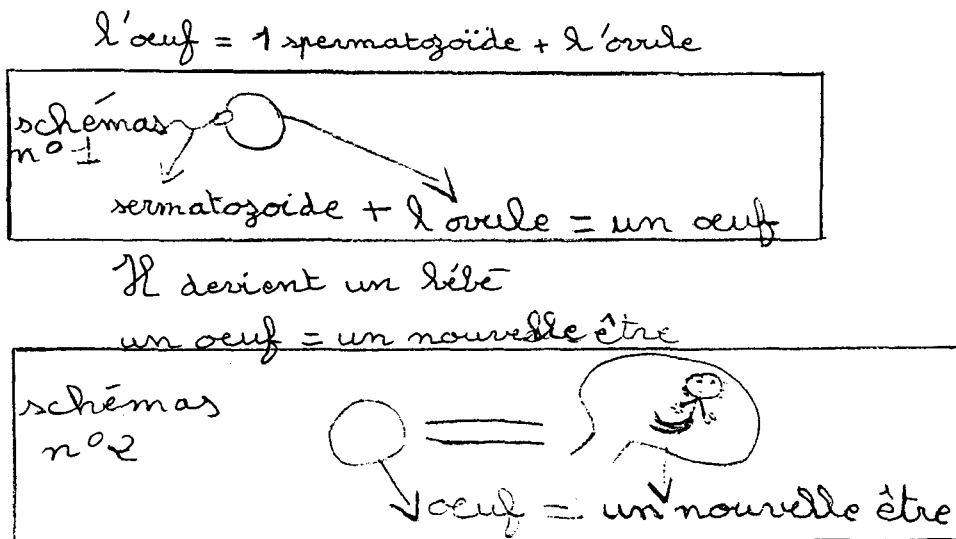 l'œuf = 1 spermatozoïde + l'ovule
schémas
n° 1
sermatozoide + l'ovule = un œuf
Il devient un bébé
un œuf = un nouvelle être
schémas
n° 2
œuf = un nouvelle être